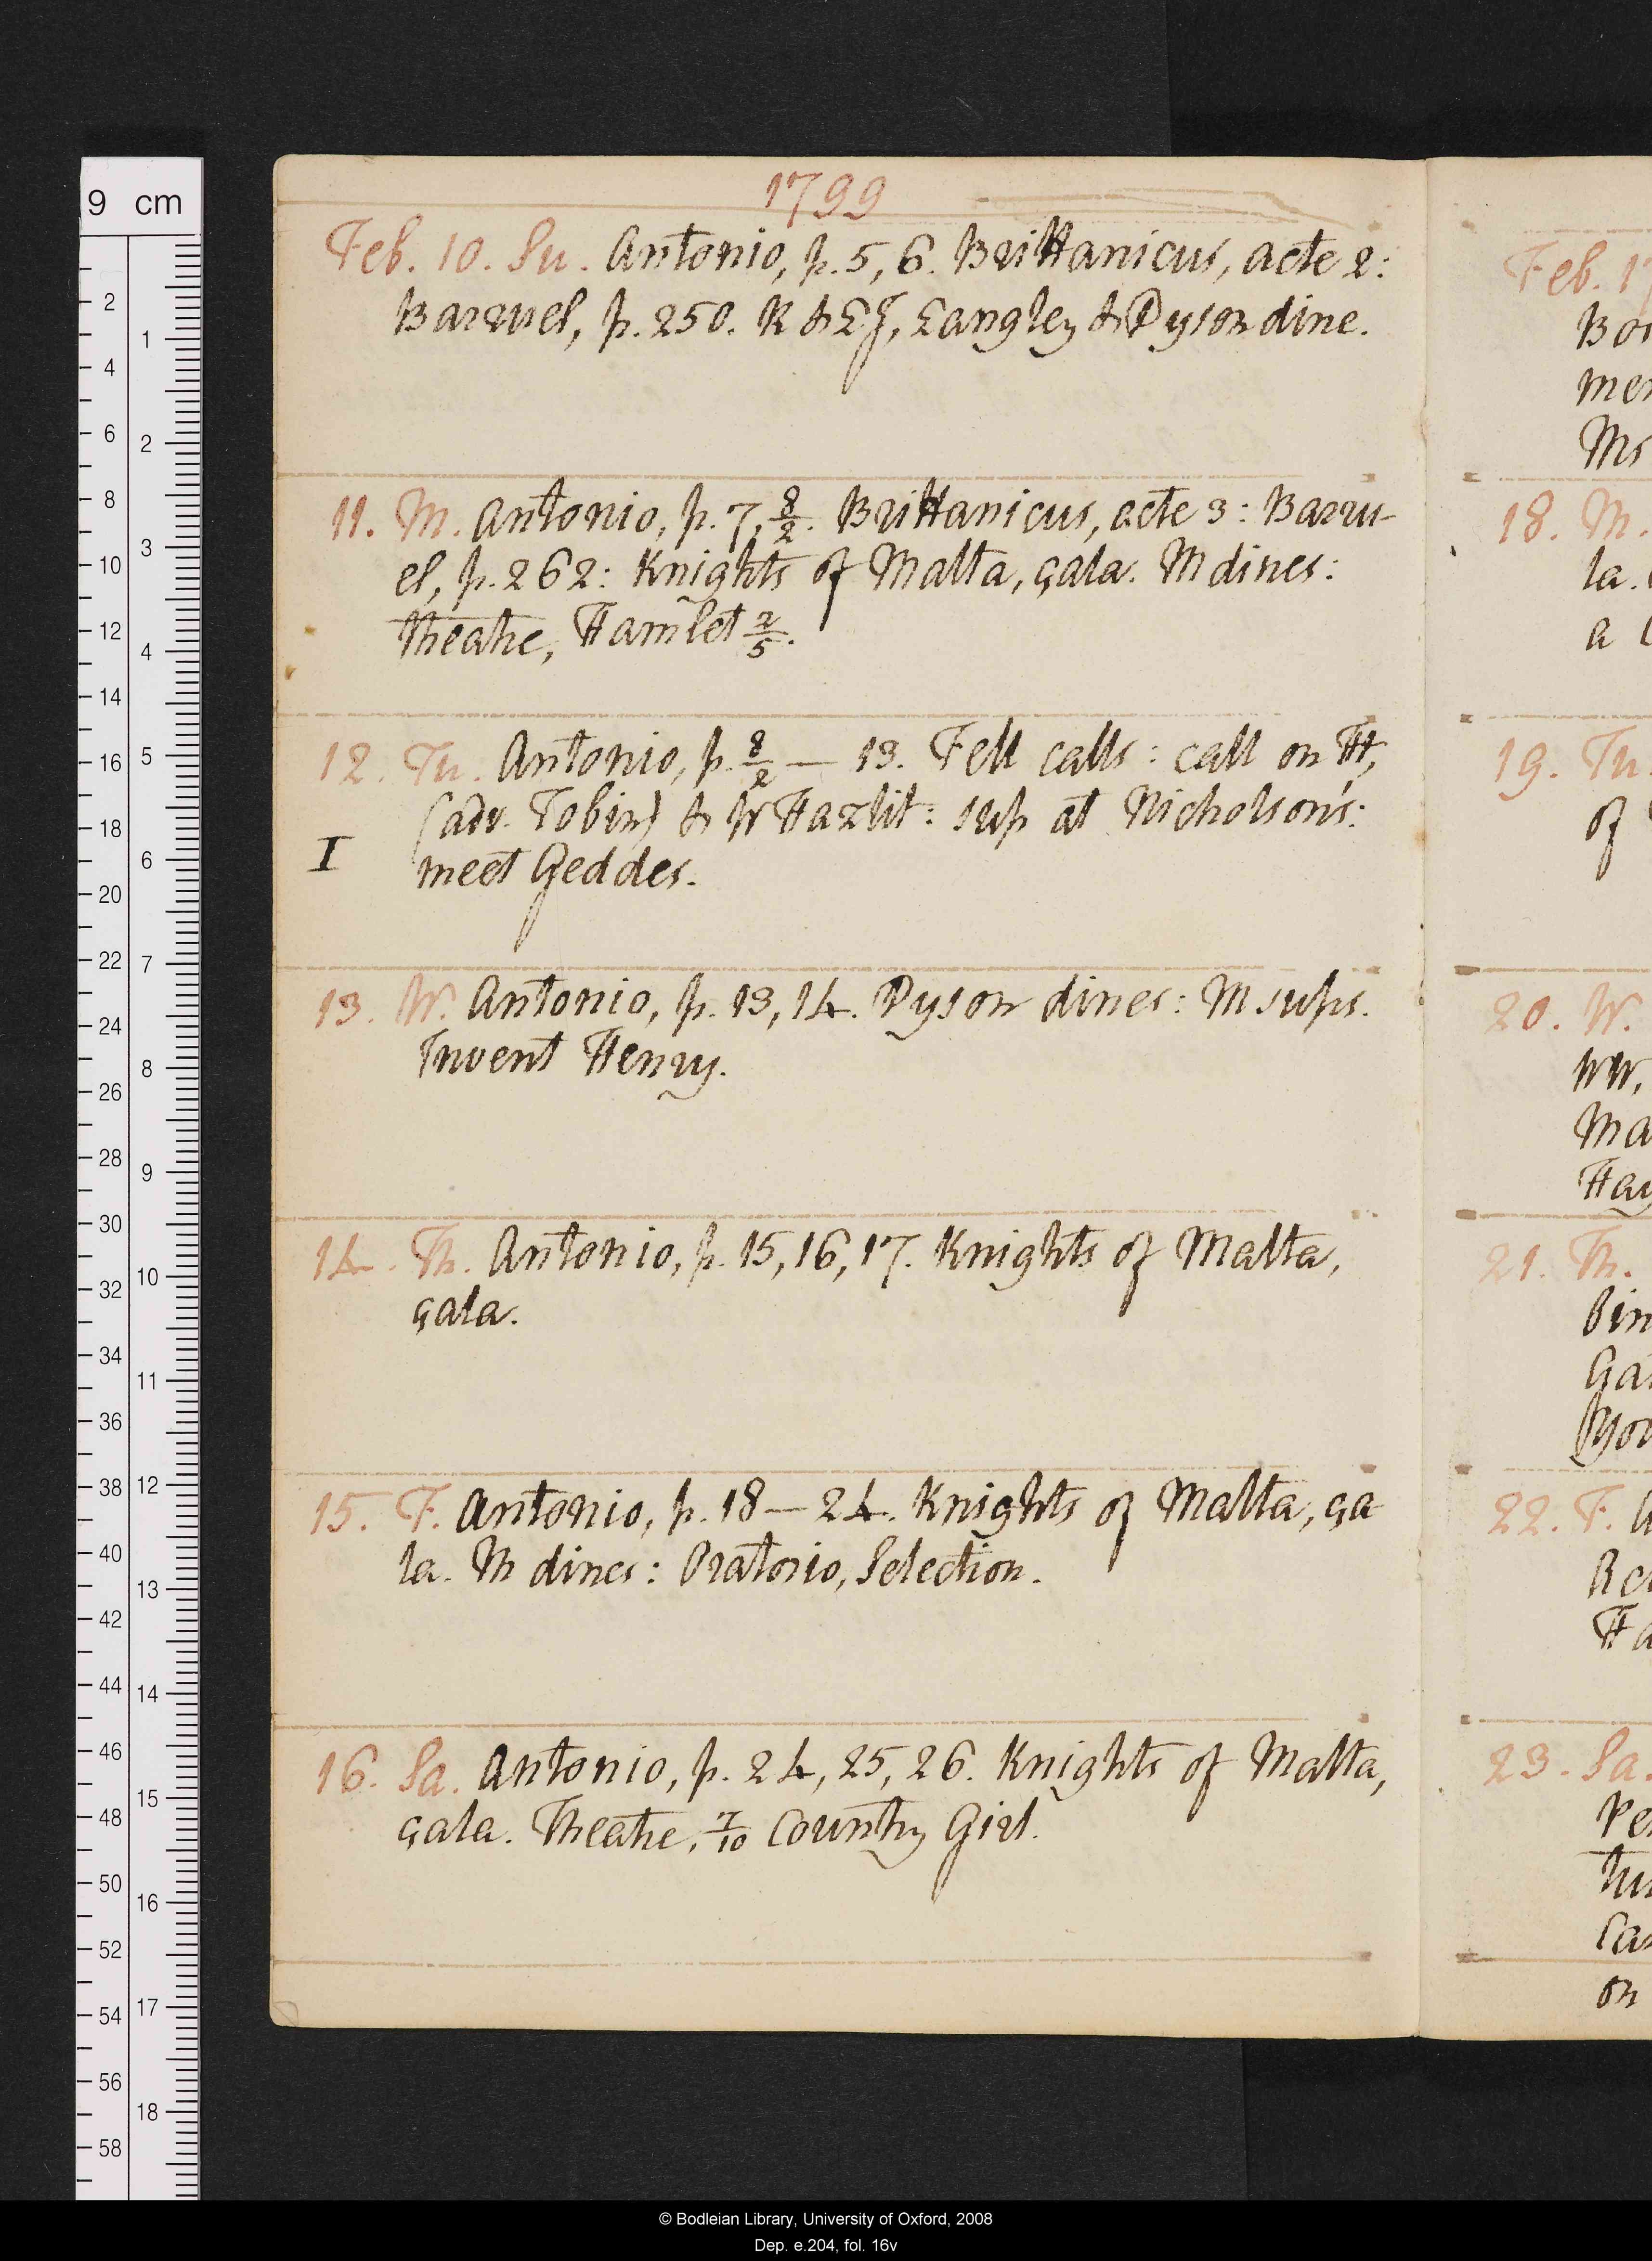 1799
Feb. 10. Su. Antonio, p. 5, 6. Brittanicus, acte 2:
Barruel, p. 250. R & LJ, Langley & Dyson dine.
11. M. Antonio, p. 7, 8/2. Brittanicus, acte 3: Barru-
el, p. 262: Knights of Malta, çala. M dines:
Theatre, Hamlet 2/5.
12. Tu. Antonio, p. 8/2 — 13. Fell calls: call on H,
(adv. Tobin) & W Hazlit: sup at Nicholson's:
I meet Geddes.
13. W. Antonio, p. 13, 14. Dyson dines: M sups.
Invent Henry.
14. Th. Antonio, p. 15, 16, 17. Knights of Malta,
çala.
15. F. Antonio, p. 18 — 24. Knights of Malta, ça
la. M dines: Oratorio, Selection.
16. Sa. Antonio, p. 24, 25, 26. Knights of Malta,
çala. Theatre, 7/10 Country Girl.
Feb. 17
Ms
18. M.
la.
a
19. Tu
of
20. W.
WW,
Ma
Hay
21. Th.
bin
Ga
22. F. A
Ha
23. Sa.
Pe
Ca
on
9 cm
2
4
6
8
10
12
14
16
18
20
22
24
26
28
30
32
34
36
38
40
42
44
46
48
50
52
54
56
58
1
2
3
4
5
6
7
8
9
10
11
12
13
14
15
16
17
18
© Bodleian Library, University of Oxford, 2008
Dep. e.204, fol. 16v